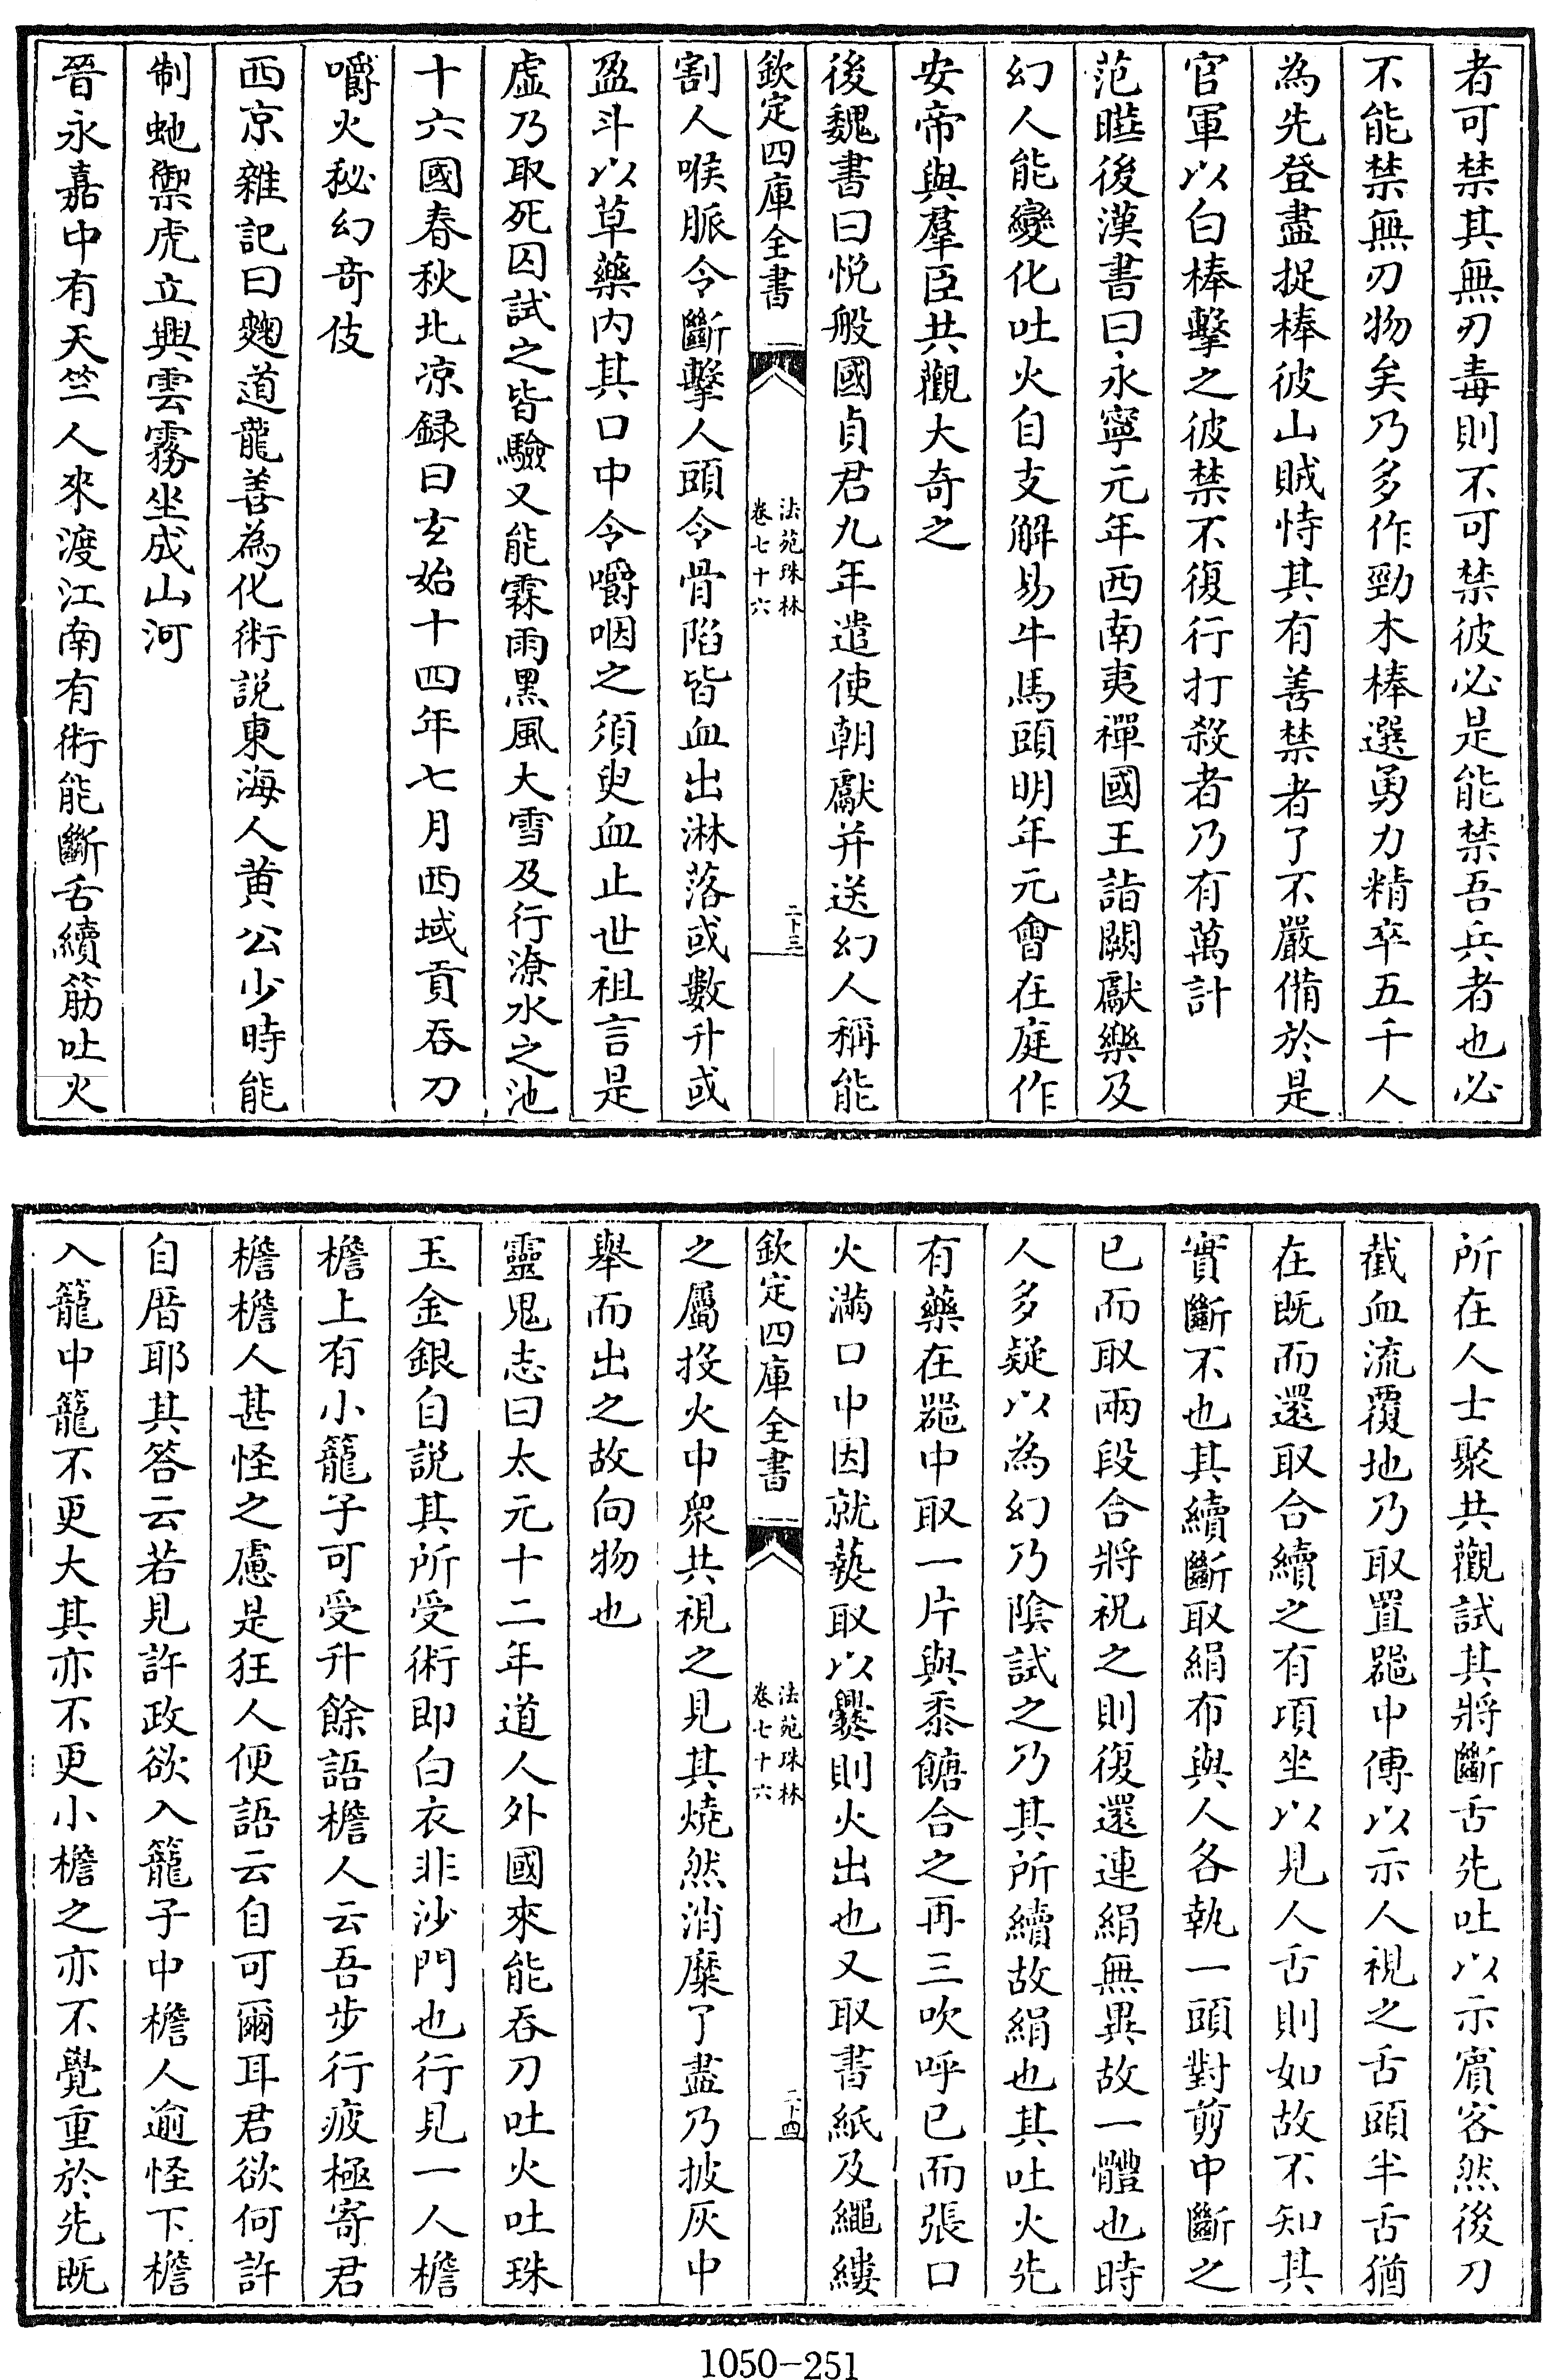 者可禁其無刃毒則不可禁彼必是能禁吾兵者也必
不能禁無刃物矣乃多作勁木棒選勇力精卒五千人
為先登盡捉棒彼山賊恃其有善禁者了不嚴備於是
官軍以白棒擊之彼禁不復行打殺者乃有萬計
范曄後漢書曰永寧元年西南夷禪國王詣闕獻樂及
幻人能變化吐火自支解易牛馬頭明年元會在庭作
安帝與羣臣共觀大奇之
後魏書曰悅般國貞君九年遣使朝獻并送幻人稱能
欽定四庫全書
法苑珠林
卷七十六
二十三
割人喉脈令斷擊人頭令骨陷皆血出淋落或數升或
盈斗以草藥内其口中令嚼咽之須臾血止世祖言是
虛乃取死囚試之皆驗又能霖雨黑風大雪及行潦水之池
十六國春秋北涼録曰玄始十四年七月西域貢吞刀
嚼火秘幻奇伎
西京雜記曰麴道龍善為化術説東海人黄公少時能
制虵禦虎立興雲霧坐成山河
晉永嘉中有天竺人來渡江南有術能斷舌續筋吐火
所在人士聚共觀試其將斷舌先吐以示賔客然後刀
截血流覆地乃取置器中傳以示人視之舌頭半舌猶
在既而還取合續之有項坐以見人舌則如故不知其
實斷不也其續斷取絹布與人各執一頭對剪中斷之
已而取兩段合將祝之則復還連絹無異故一體也時
人多疑以為幻乃陰試之乃其所續故絹也其吐火先
有藥在器中取一片與黍餹合之再三吹呼已而張口
火滿口中因就爇取以爨則火出也又取書紙及繩縷
欽定四庫全書
法苑珠林
卷七十六
二十四
之屬投火中衆共視之見其燒然消糜了盡乃披灰中
舉而出之故向物也
靈鬼志曰太元十二年道人外國來能吞刀吐火吐珠
玉金銀自説其所受術即白衣非沙門也行見一人檐
檐上有小籠子可受升餘語檐人云吾步行疲極寄君
檐檐人甚怪之慮是狂人便語云自可爾耳君欲何許
自厝耶其答云若見許政欲入籠子中檐人逾怪下檐
入籠中籠不更大其亦不更小檐之亦不覺重於先既
1050-251